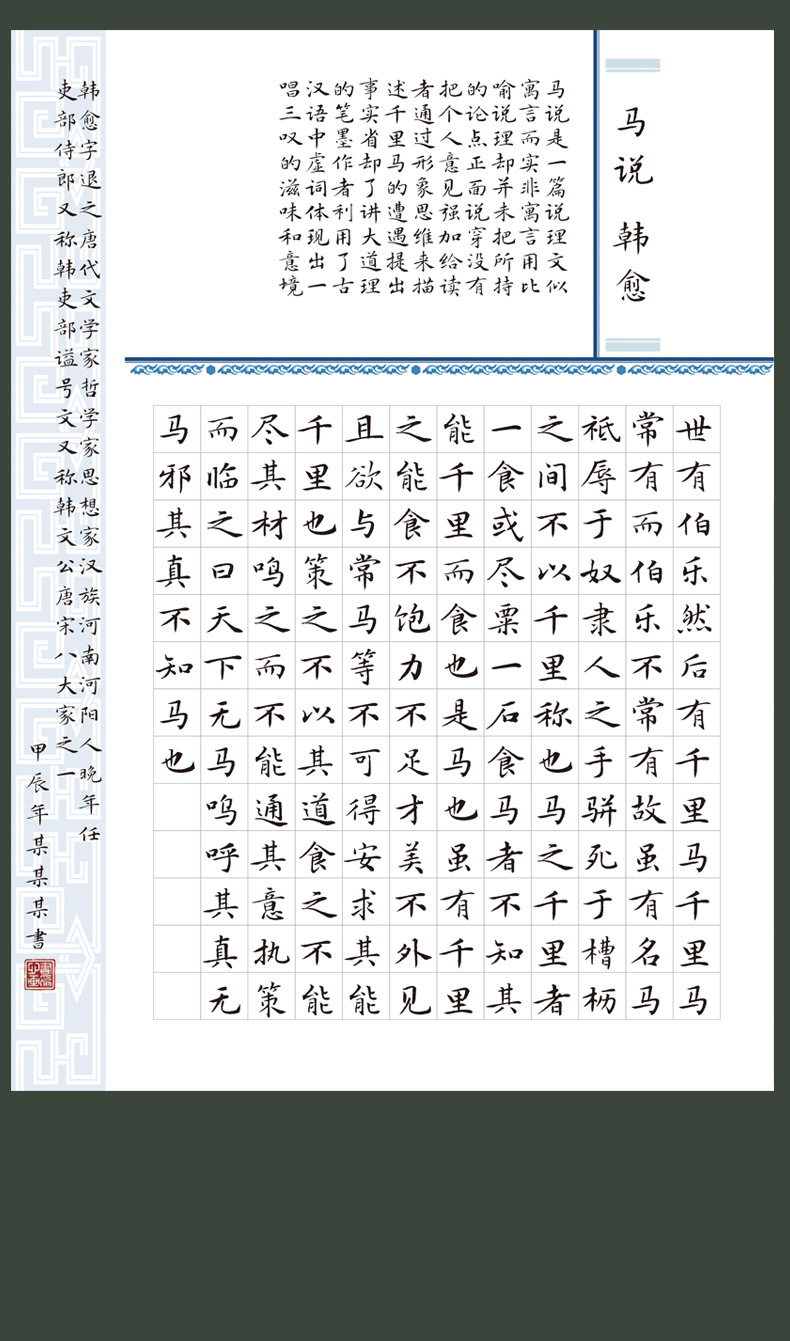 马说 韩愈
马说是一篇说理文似
寓言而实非寓言用比
喻说理却并未把所持
的论点正面说穿没有
把个人意见强加给读
者通过形象思维来描
述千里马的遭遇提出
事实省却了讲大道理
的笔墨作者利用了古
汉语中虚词体现出一
唱三叹的滋味和意境
世有伯乐然后有千里马千里马
常有而伯乐不常有故虽有名马
祗辱于奴隶人之手骈死于槽枥
之间不以千里称也马之千里者
一食或尽粟一石食马者不知其
能千里而食也是马也虽有千里
之能食不饱力不足才美不外见
且欲与常马等不可得安求其能
千里也策之不以其道食之不能
尽其材鸣之而不能通其意执策
而临之曰天下无马呜呼其真无
马邪其真不知马也
韩愈字退之唐代文学家哲学家思想家汉族河南河阳人晚年任
吏部侍郎又称韩吏部谥号文又称韩文公唐宋八大家之一
甲辰年某某某書